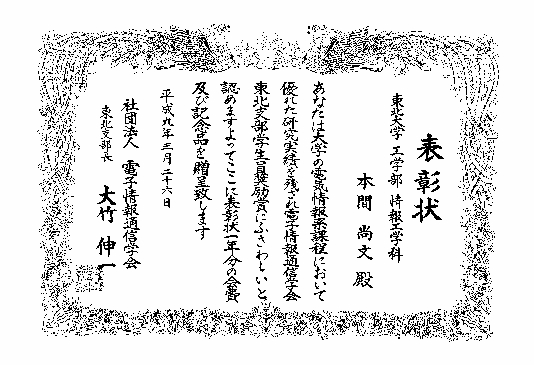 表彰状
東北大学 工学部 情報工学科
本間 尚文 殿
あなたは大学の電気情報系課程において
優れた研究実績を残され電子情報通信学会
東北支部学生員奨励賞にふさわしいと
認めますよってここに表彰状一年分の会費
及び記念品を贈呈致します
平成九年三月二十六日
社団法人 電子情報通信学会
東北支部長
大竹 伸一